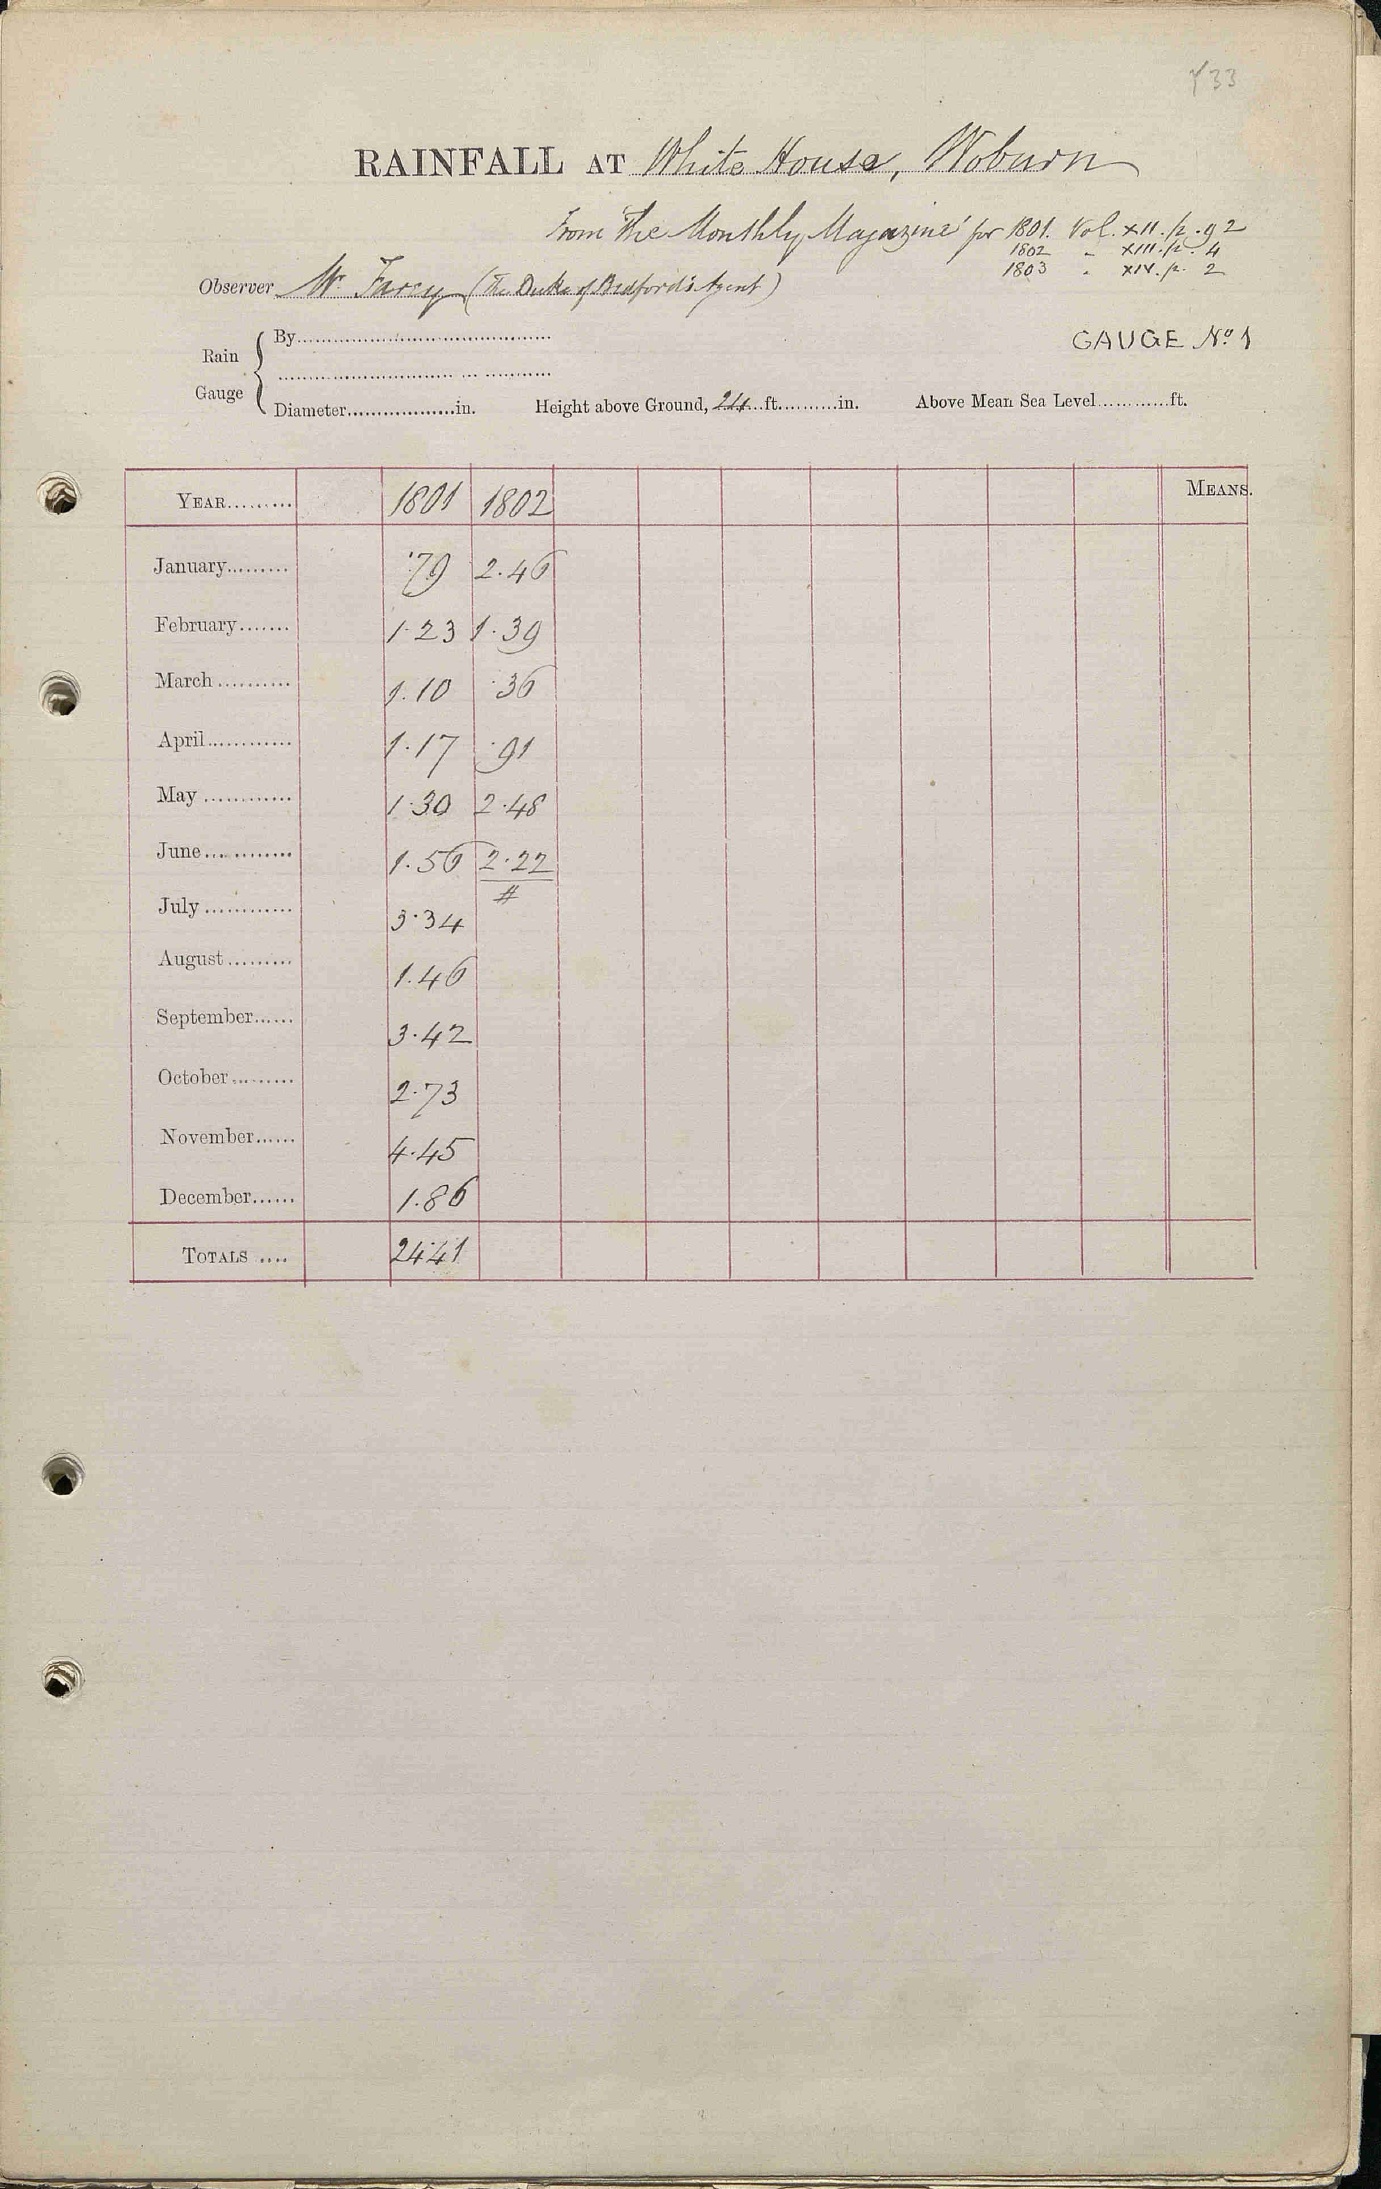 733
RAINFALL AT White House, Woburn
From 'The Monthly Magazine' for 1801. Vol. XII. p. 92
1802 " XIII. p. 4
1803 " XIV. p. 2
Observer Mr. Farey (The Duke of Bedford's Agent)
Rain Gauge { By
GAUGE No 1
Diameter in. Height above Ground, 24 ft. in. Above Mean Sea Level ft.
YEAR 1801 1802 MEANS.
January ·79 2·46
February 1·23 1·39
March 1·10 ·36
April 1·17 ·91
May 1·30 2·48
June 1·56 2·22
#
July 3·34
August 1·46
September 3·42
October 2·73
November 4·45
December 1·86
TOTALS 24·41